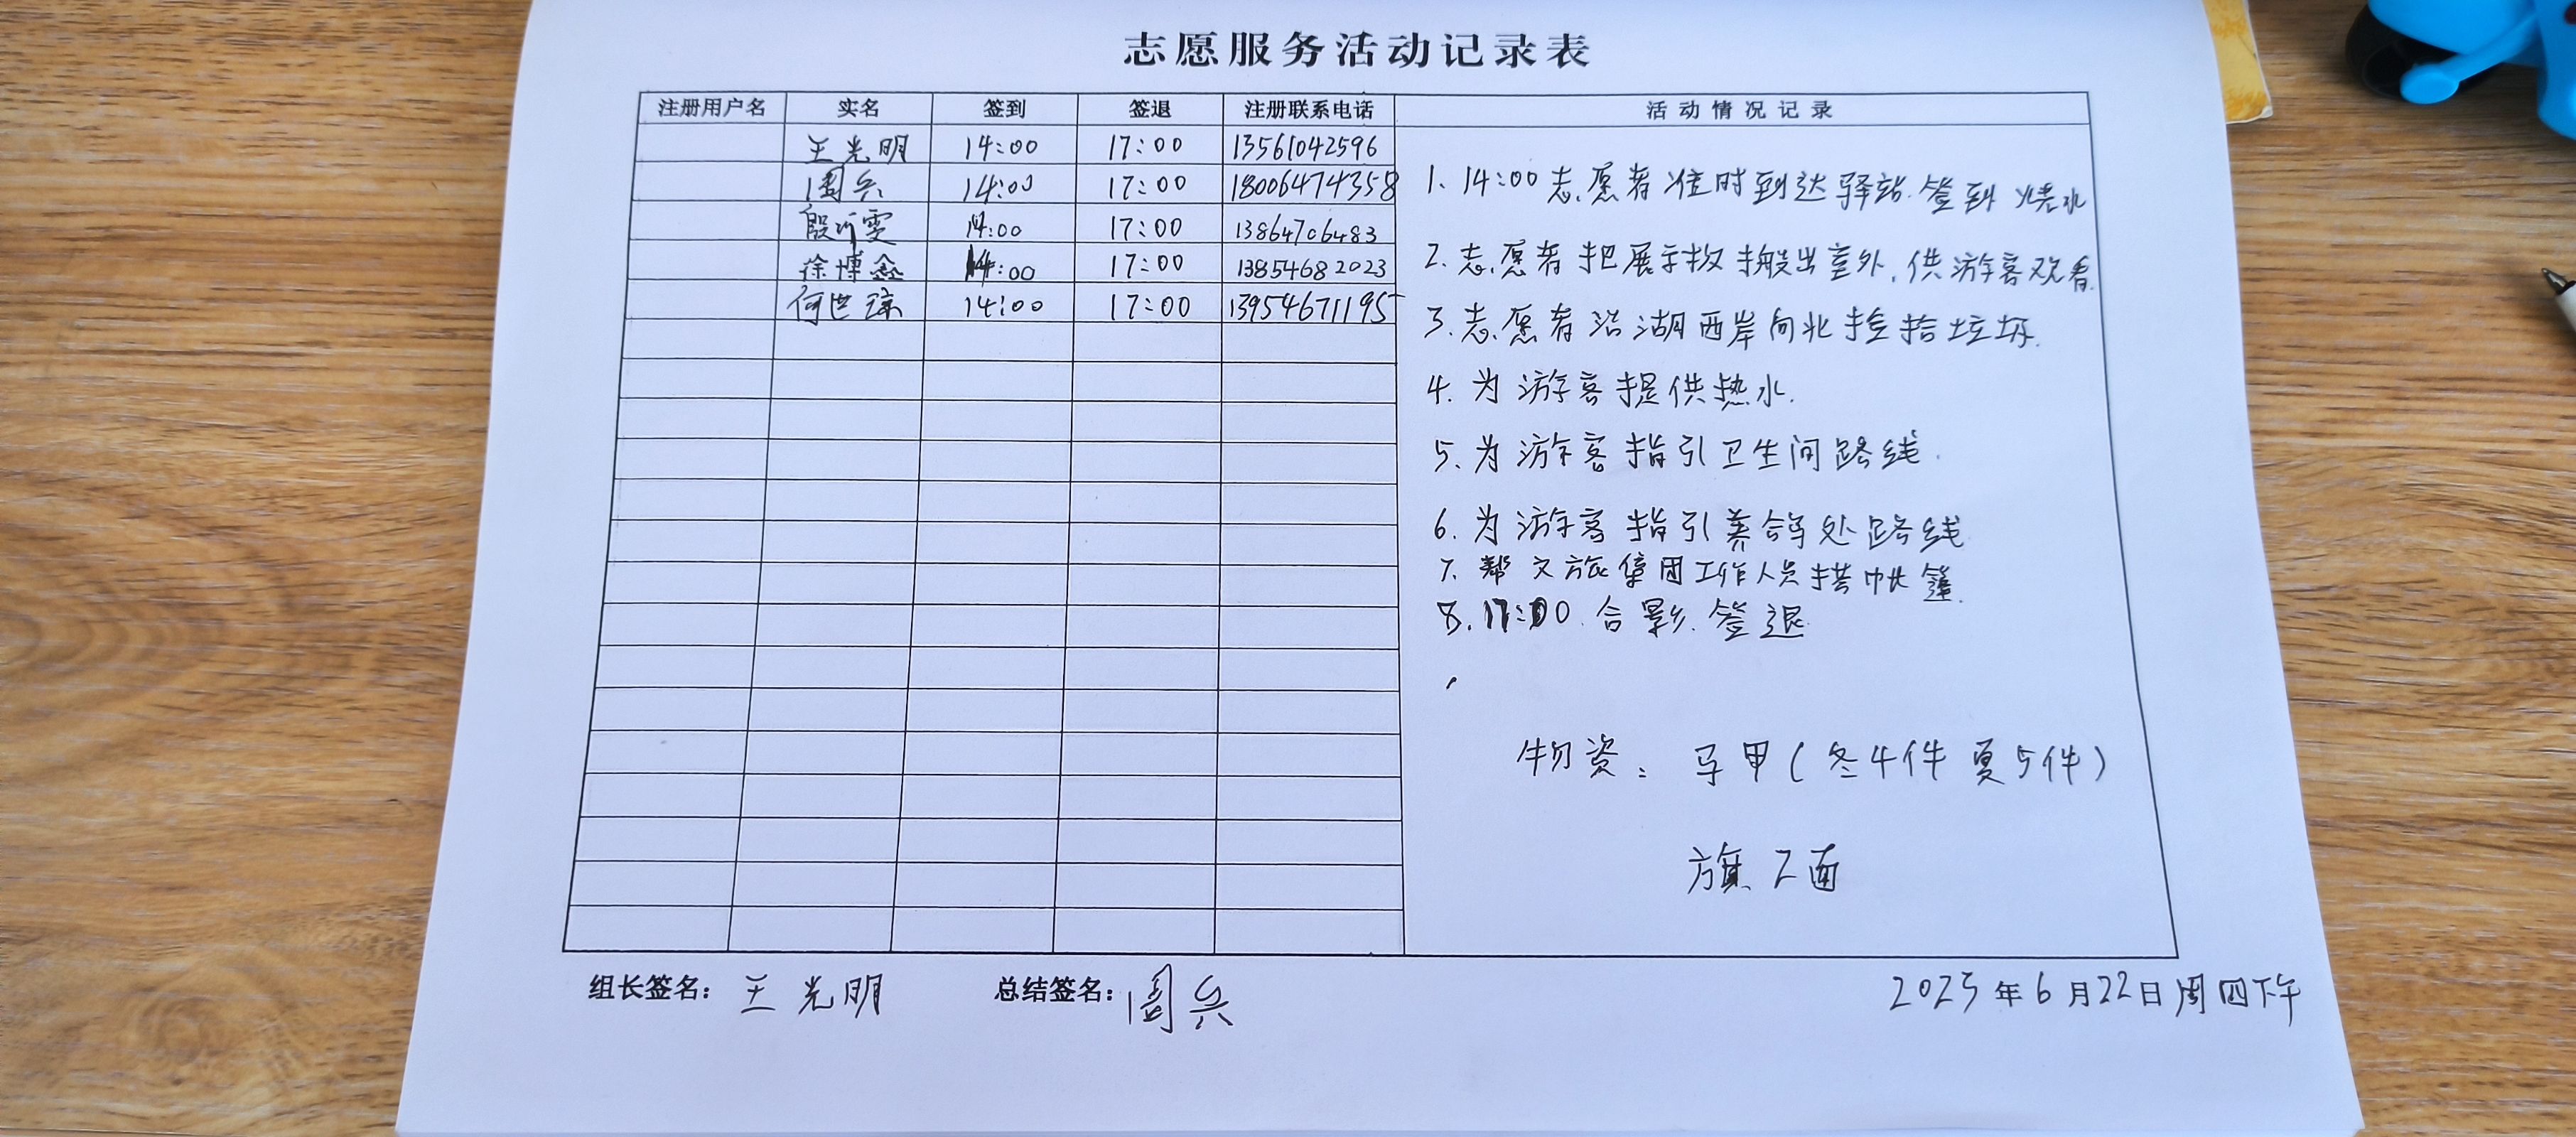 志愿服务活动记录表
注册用户名 实名 签到 签退 注册联系电话 活动情况记录
王光明 14:00 17:00 13561042596
周兵 14:00 17:00 18006474358
殷沂雯 14:00 17:00 13864706483
徐博鑫 14:00 17:00 13854682023
何世 14:00 17:00 13954671195
1. 14:00志愿者准时到达驿站.签到 烧水
2. 志愿者把展示板搬出室外,供游客观看.
3. 志愿者沿湖西岸向北捡拾垃圾.
4. 为游客提供热水.
5. 为游客指引卫生间路线.
6. 为游客指引养鸽处路线
7. 帮文旅集团工作人员搭帐篷.
8. 17:00.合影.签退
物资: 马甲(冬4件 夏5件)
旗2面
组长签名: 王光明 总结签名: 周兵 2025年6月22日周四下午